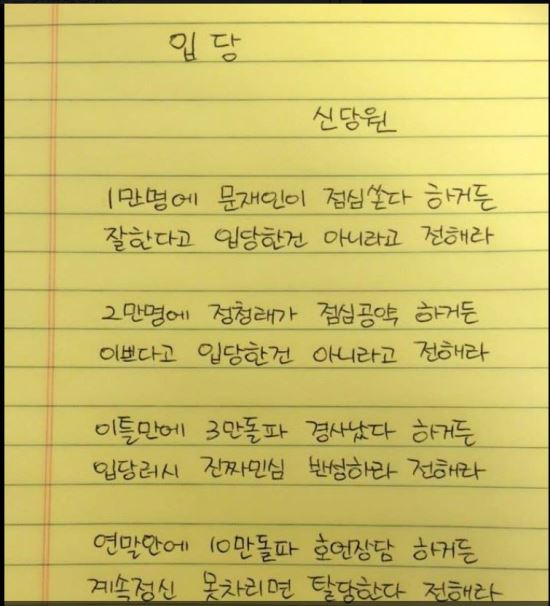 입당
신당원
1만명에 문재인이 점심쏜다 하거든
잘한다고 입당한건 아니라고 전해라
2만명에 정청래가 점심공약 하거든
이쁘다고 입당한건 아니라고 전해라
이틀만에 3만돌파 경사났다 하거든
입당러시 진짜민심 반성하라 전해라
연말안에 10만돌파 호언장담 하거든
계속정신 못차리면 탈당한다 전해라